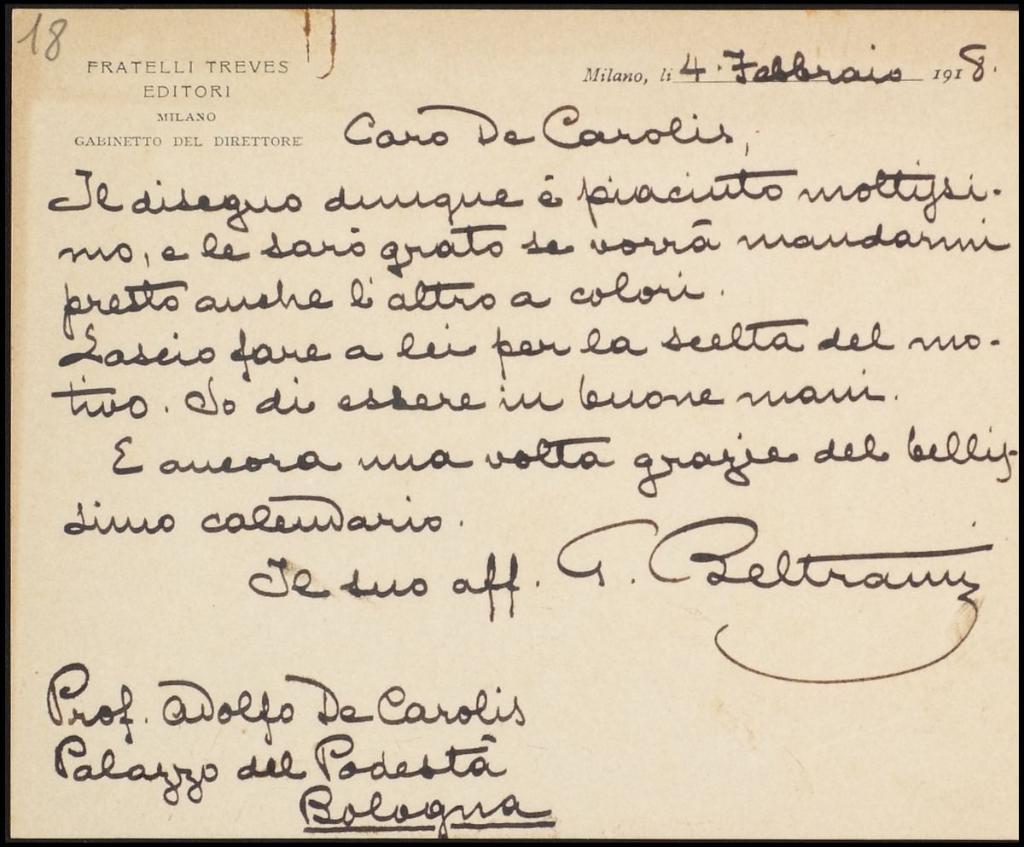 18
FRATELLI TREVES
EDITORI
MILANO
GABINETTO DEL DIRETTORE
Milano, li 4. Febbraio 1918.
Caro De Carolis,
Il disegno dunque è piaciuto moltissi-
mo, e le sarò grato se vorrà mandarmi
presto anche l'altro a colori.
Lascio fare a lei per la scelta del mo-
tivo. So di essere in buone mani.
E ancora una volta grazie del bellis-
simo calendario.
Il suo aff. G. Beltrami
Prof. Adolfo De Carolis
Palazzo del Podestà
Bologna